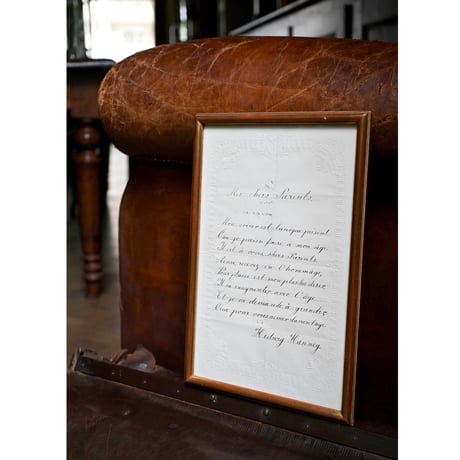 Mes chers Parents
Mon cœur est l'unique présent
Que je puisse faire à mon âge
Il est à vous, chers Parents
Ainsi recevez en l'hommage,
Vous plaire est mon plus cher désir
Il va augmenter avec l'âge
Et je ne demande à grandir
Que pour vous aimer davantage.
Hedwig Hannig